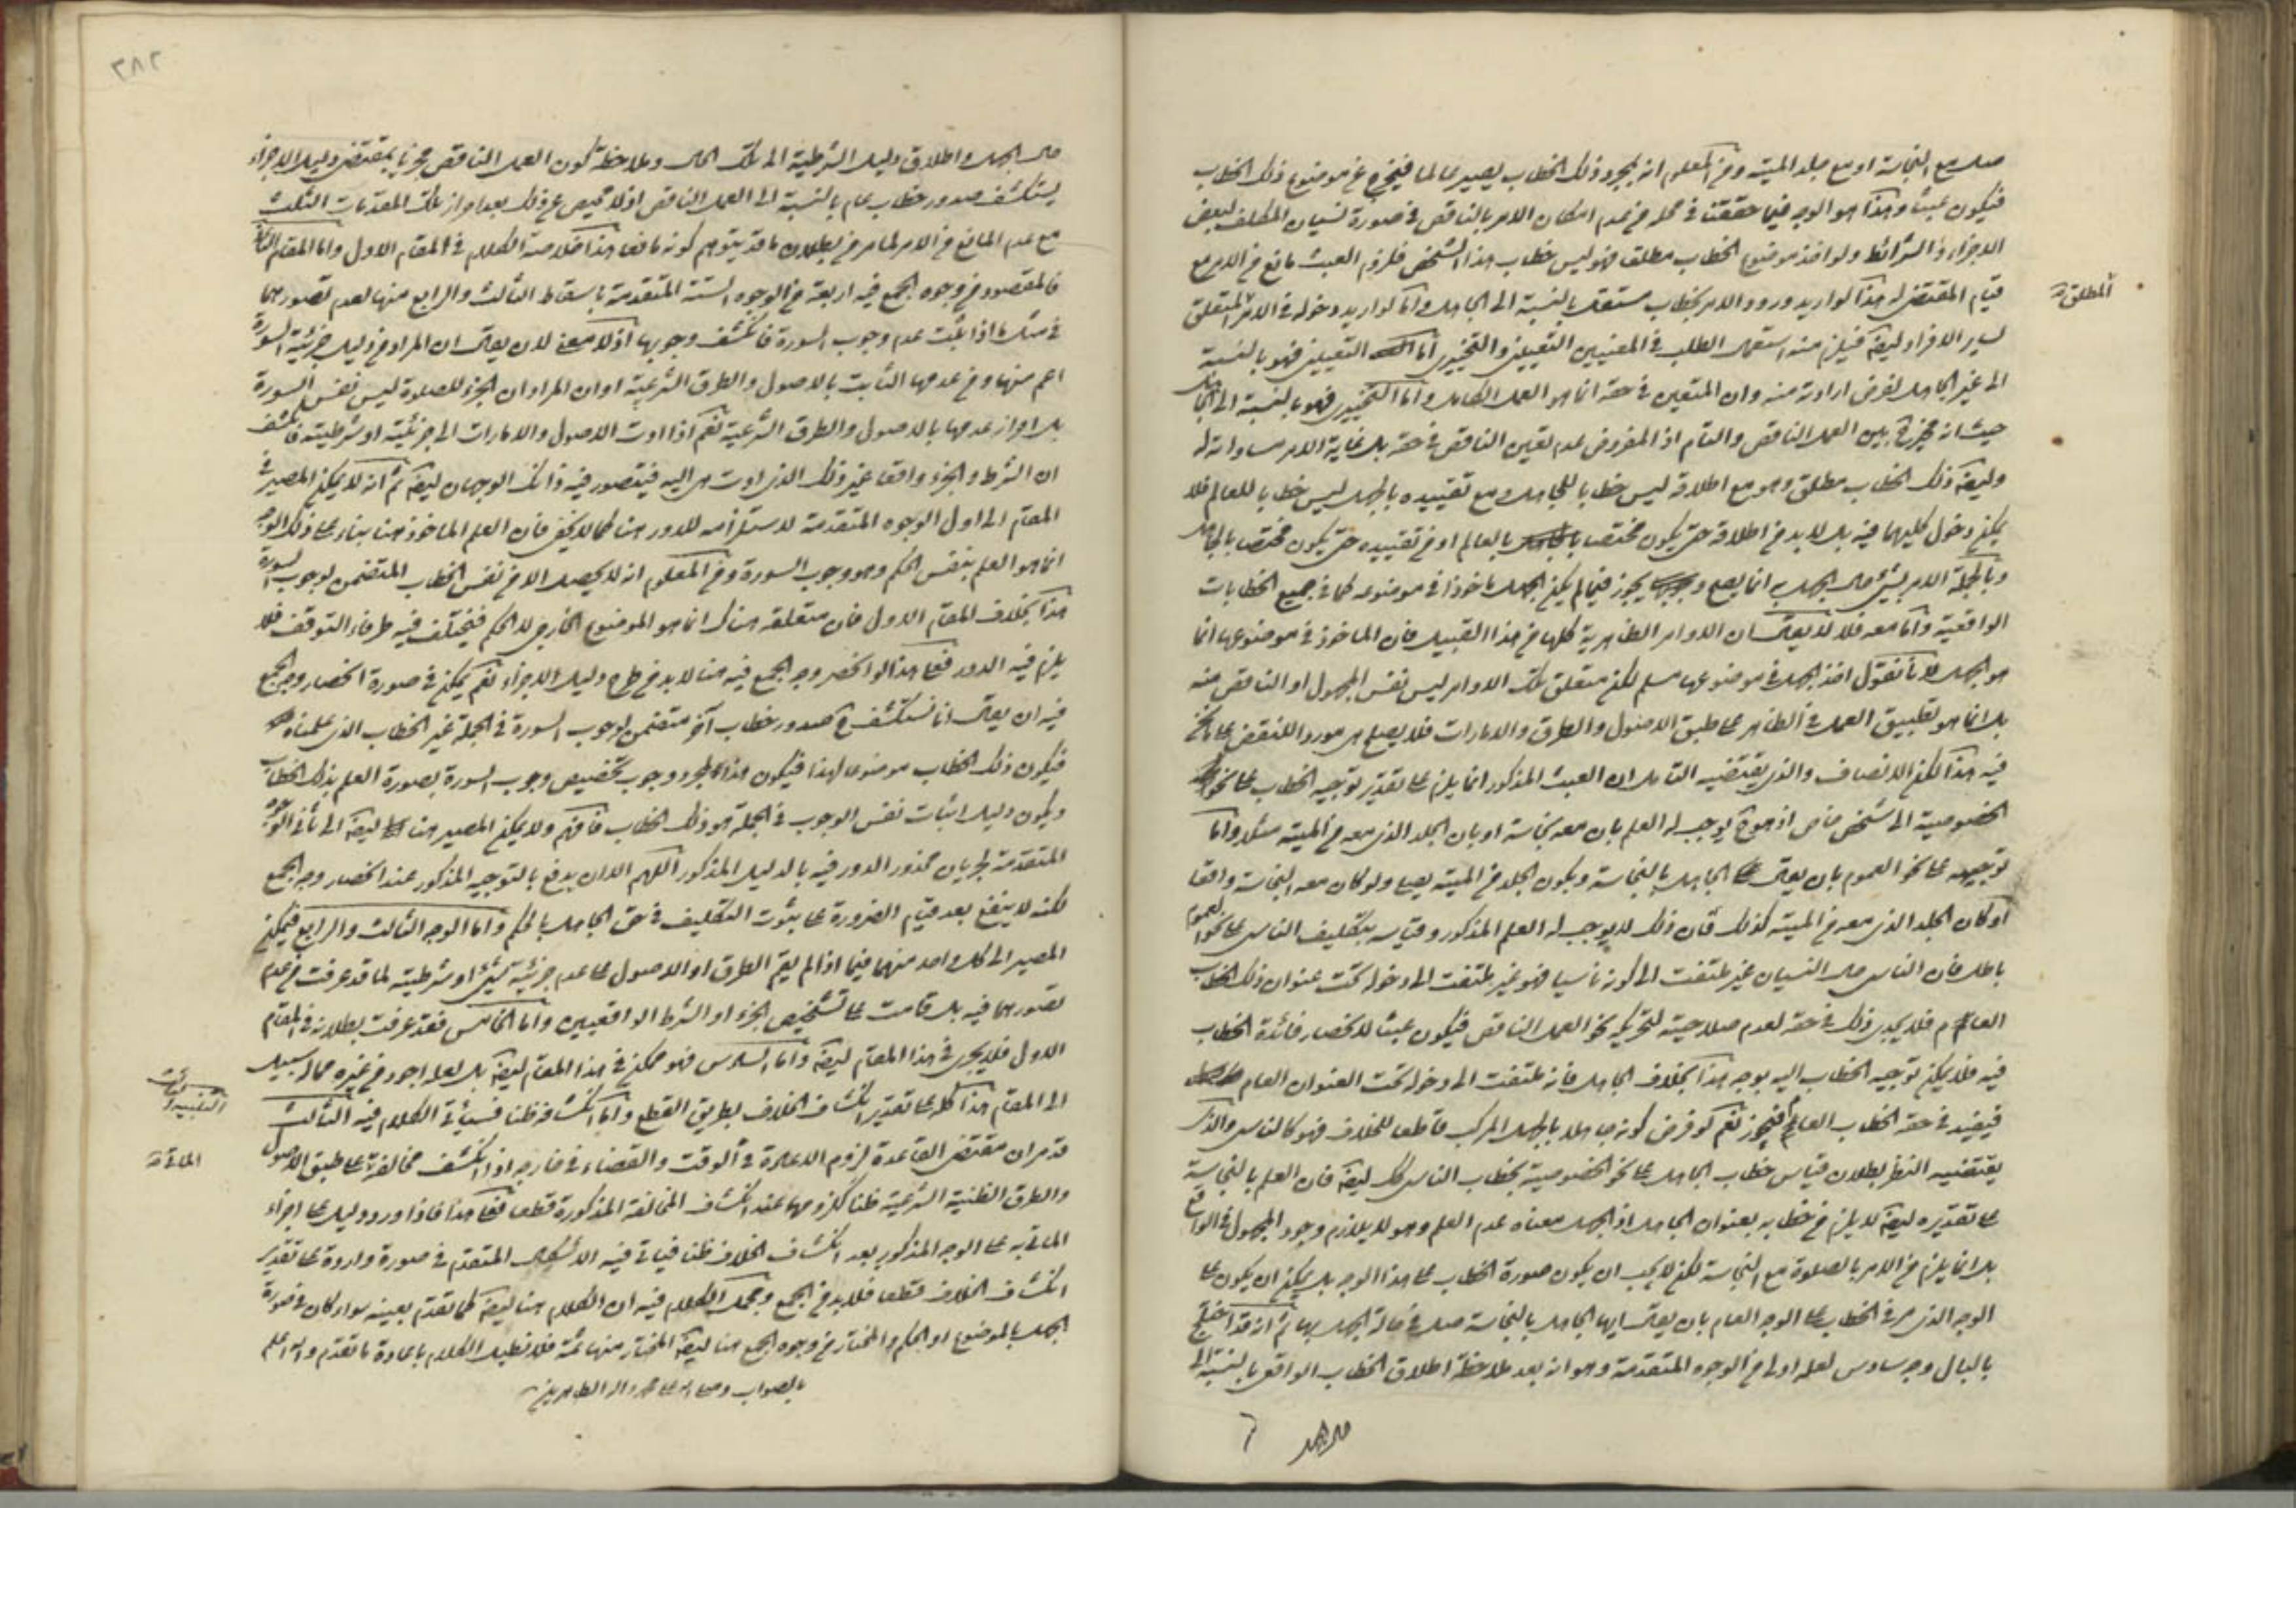 صل مع النجاسة او مع جلد الميتة ومن المعلوم انه بمجرد ذلك الخطاب يصير عالما فيخرج عن موضوع ذلك الخطاب
فيكون عبثا وهذا هو الوجه فيما حققنا في محله من عدم امكان الامر بالناقص في صورة نسيان المكلف لبعض
الاجزاء والشرائط ولو اخذ موضوع الخطاب مطلق فهو ليس خطاب هذا الشخص فلزوم العبث مانع من الامر مع
قيام المقتضى له هذا لو اريد ورود الامر بخطاب مستقل بالنسبة الى الجاهل واما لو اريد دخوله في الامر المتعلق
المطلق
لساير الافراد ايضا فيلزم منه استعمال الطلب في المعنيين التعييني والتخييري اما التعييني فهو بالنسبة
الى غير الجاهل لفرض ارادته منه وان المتعين في حقه انما هو العمل الكامل واما التخييري فهو بالنسبة الى الجاهل
حيث انه مخير بين العمل الناقص والتام اذ المفروض عدم تعين الناقص في حقه بل غاية الامر مساواته له
وايضا ذلك الخطاب مطلق وهو مع اطلاقه ليس خطابا للجاهل ومع تقييده بالجهل ليس خطابا للعالم فلا
يمكن دخول كليهما فيه بل لابد من اطلاقه حتى يكون مختصا بالعالم او من تقييده حتى يكون مختصا بالجاهل
وبالجملة الامر بشيء حال الجهل به انما يصح ويجوز فيما لم يكن الجهل ماخوذا في موضوعه كما في جميع الخطابات
الواقعية واما معه فلا لا يقال ان الاوامر الظاهرية كلها من هذا القبيل فان الماخوذ في موضوعها انما
هو الجهل لانا نقول اخذ الجهل في موضوعها مسلم لكن متعلق تلك الاوامر ليس نفس المجهول او الناقص منه
بل انما هو تطبيق العمل في الظاهر على طبق الاصول والطرق والامارات فلا يصلح هي موردا للنقض على ما نحن
فيه هذا لكن الانصاف والذي يقتضيه التامل ان العبث المذكور انما يلزم على تقدير توجيه الخطاب على نحو
الخصوصية الى شخص خاص اذ هو ح يوجب له العلم بان معه نجاسة او بان الجلد الذي معه من الميتة مثلا واما
توجيهه على نحو العموم بان يقال الجاهل بالنجاسة وبكون الجلد من الميتة يصلي ولو كان معه النجاسة واقعا
او كان الجلد الذي معه من الميتة كذلك فان ذلك لا يوجب له العلم المذكور وقياسه بتكليف الناسي على نحو العموم
باطل فان الناسي حال النسيان غير ملتفت الى كونه ناسيا فهو غير ملتفت الى دخوله تحت عنوان ذلك الخطاب
العام فلا يجدي ذلك في حقه لعدم صلاحيته لتحريكه نحو العمل الناقص فيكون عبثا لانحصار فائدة الخطاب
فيه فلا يمكن توجيه الخطاب اليه بوجه هذا بخلاف الجاهل فانه ملتفت الى دخوله تحت العنوان العام
فيفيد في حقه الخطاب العام فيجوز نعم لو فرض كونه جاهلا بالجهل المركب قاطعا للخلاف فهو كالناسي والذي
يقتضيه النظر بطلان قياس خطاب الجاهل على نحو الخصوصية بخطاب الناسي كك ايضا فان العلم بالنجاسة
على تقديره ايضا لا يلزم من خطابه بعنوان الجاهل اذ الجهل معناه عدم العلم وهو لا يلازم وجود المجهول في الواقع
بل انما يلزم من الامر بالصلوة مع النجاسة لكن لا يجب ان يكون صورة الخطاب على هذا الوجه بل يمكن ان يكون على
الوجه الذي مر في الخطاب على الوجه العام بان يقال ايها الجاهل بالنجاسة صل في حالة الجهل بها ثم انه قد اختلج
بالبال وجه سادس لعله اولى من الوجوه المتقدمة وهو انه بعد ملاحظة اطلاق الخطاب الواقعي بالنسبة الى
حال الجهل
٣٨٢
حال الجهل واطلاق دليل الشرطية الى تلك الحال وملاحظة كون العمل الناقص مجزيا بمقتضى دليل الاجزاء
يستكشف صدور خطاب عام بالنسبة الى العمل الناقص اذ لا محيص عن ذلك بعد احراز تلك المقدمات الثلث
مع عدم المانع من الامر لما مر من بطلان ما قد يتوهم كونه مانعا هذا خلاصة الكلام في المقام الاول واما المقام الثاني
فالمقصود من وجوه الجمع فيه اربعة من الوجوه الستة المتقدمة باسقاط الثالث والرابع منها لعدم تصورهما
في مثل ما اذا ثبت عدم وجوب السورة فانكشف وجوبها اذ لا معنى لان يقال ان المراد من دليل جزئية السورة
اعم منها ومن عدمها الثابت بالاصول والطرق الشرعية او ان المراد ان الجزء للصلوة ليس نفس السورة
بل احراز عدمها بالاصول والطرق الشرعية نعم اذا ادت الاصول والامارات الى جزئيته او شرطيته فانكشف
ان الشرط والجزء واقعا غير ذلك الذي ادت هي اليه فيتصور فيه ذانك الوجهان ايضا ثم انه لا يمكن المصير في
المقام الى اول الوجوه المتقدمة لاستلزامه للدور هنا كما لا يخفى فان العلم الماخوذ هنا بناء على ذلك الوجه
انما هو العلم بنفس الحكم وهو وجوب السورة ومن المعلوم انه لا يحصل الا من نفس الخطاب المتضمن لوجوب السورة
هذا بخلاف المقام الاول فان متعلقه هناك انما هو الموضوع الخارجي لا الحكم فيختلف فيه طرفا التوقف فلا
يلزم فيه الدور فعلى هذا لو انحصر وجه الجمع فيه هنا لابد من طرح دليل الاجزاء نعم يمكن في صورة انحصار وجه الجمع
فيه ان يقال انا نستكشف ح صدور خطاب آخر متضمن لوجوب السورة في الجملة غير الخطاب الذي علمناه
فيكون ذلك الخطاب موضوعا لهذا فيكون هذا لمجرد وجوب تخصيص وجوب السورة بصورة العلم بذلك الخطاب
ويكون دليل اثبات نفس الوجوب في الجملة هو ذلك الخطاب فافهم ولا يمكن المصير هنا ايضا الى ثاني الوجوه
المتقدمة لجريان محذور الدور فيه بالدليل المذكور اللهم الا ان يدفع بالتوجيه المذكور عند انحصار وجه الجمع
لكنه لا ينفع بعد قيام الضرورة على ثبوت التكليف في حق الجاهل بالحكم واما الوجه الثالث والرابع فيمكن
المصير الى كل واحد منهما فيما اذا لم يقم الطرق او الاصول على عدم جزئية شيء او شرطيته لما قد عرفت من عدم
تصورهما فيه بل قامت على تشخيص الجزء او الشرط الواقعيين واما الخامس فقد عرفت بطلانه في المقام
الاول فلا يجري في هذا المقام ايضا واما السادس فهو ممكن في هذا المقام ايضا بل لعله اجود من غيره مما له سبيل
الى المقام هذا كله على تقدير انكشاف الخلاف بطريق القطع واما انكشافه ظنا فسيأتي الكلام فيه الثالث
التنبيه الثالث
قد مر ان مقتضى القاعدة لزوم الاعادة في الوقت والقضاء في خارجه اذا انكشف مخالفة على طبق الاصول
الماتى
والطرق الظنية الشرعية ظنا كلزومها عند انكشاف المخالفة المذكورة قطعا فعلى هذا فاذا ورد دليل على اجزاء
الماتي به على الوجه المذكور بعد انكشاف الخلاف ظنا فياتي فيه الاشكال المتقدم في صورة وروده على تقدير
انكشاف الخلاف قطعا فلابد من الجمع ومجمل الكلام فيه ان الكلام هنا ايضا كما تقدم بعينه سواء كان في صورة
الجهل بالموضوع او الحكم والمختار من وجوه الجمع هنا ايضا المختار منها ثمة فلا نطيل الكلام باعادة ما تقدم والله اعلم
بالصواب وصلى الله على محمد واله الطاهرين